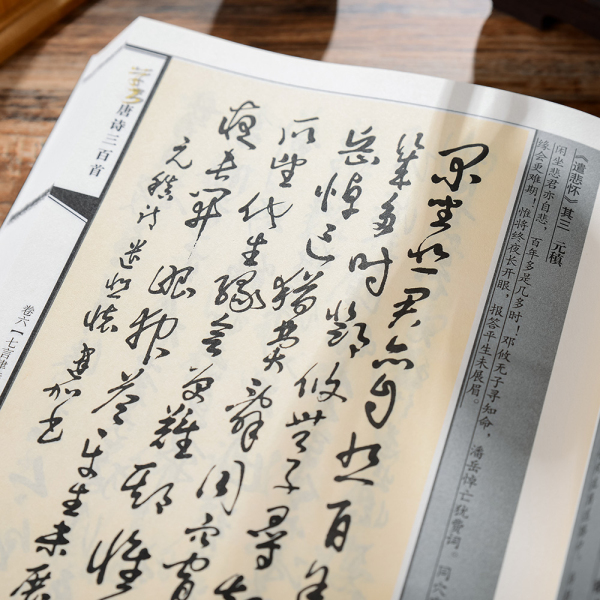 《遣悲怀》其三 元稹
闲坐悲君亦自悲，百年多是几多时！邓攸无子寻知命，潘岳悼亡犹费词。同穴
缘会更难期！惟将终夜长开眼，报答平生未展眉。
闲坐悲君亦自悲百年
几多时邓攸无子寻知
岳悼亡犹费辞同穴窅
所望他生缘会更难期惟
夜长开眼报答平生未展
元稹诗遣悲怀 书
唐诗三百首
卷六【七言律